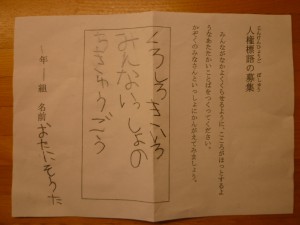 じんけんひょうご　ぼしゅう
人権標語の募集
みんながなかよくくらせるように、こころがほっとするよ
うなあたたかいことばをつくってください。
かぞくのみなさんといっしょにかんがえてみましょう。
くろしろきいろ
みんないっしょの
ちきゅうごう
年 組 名前